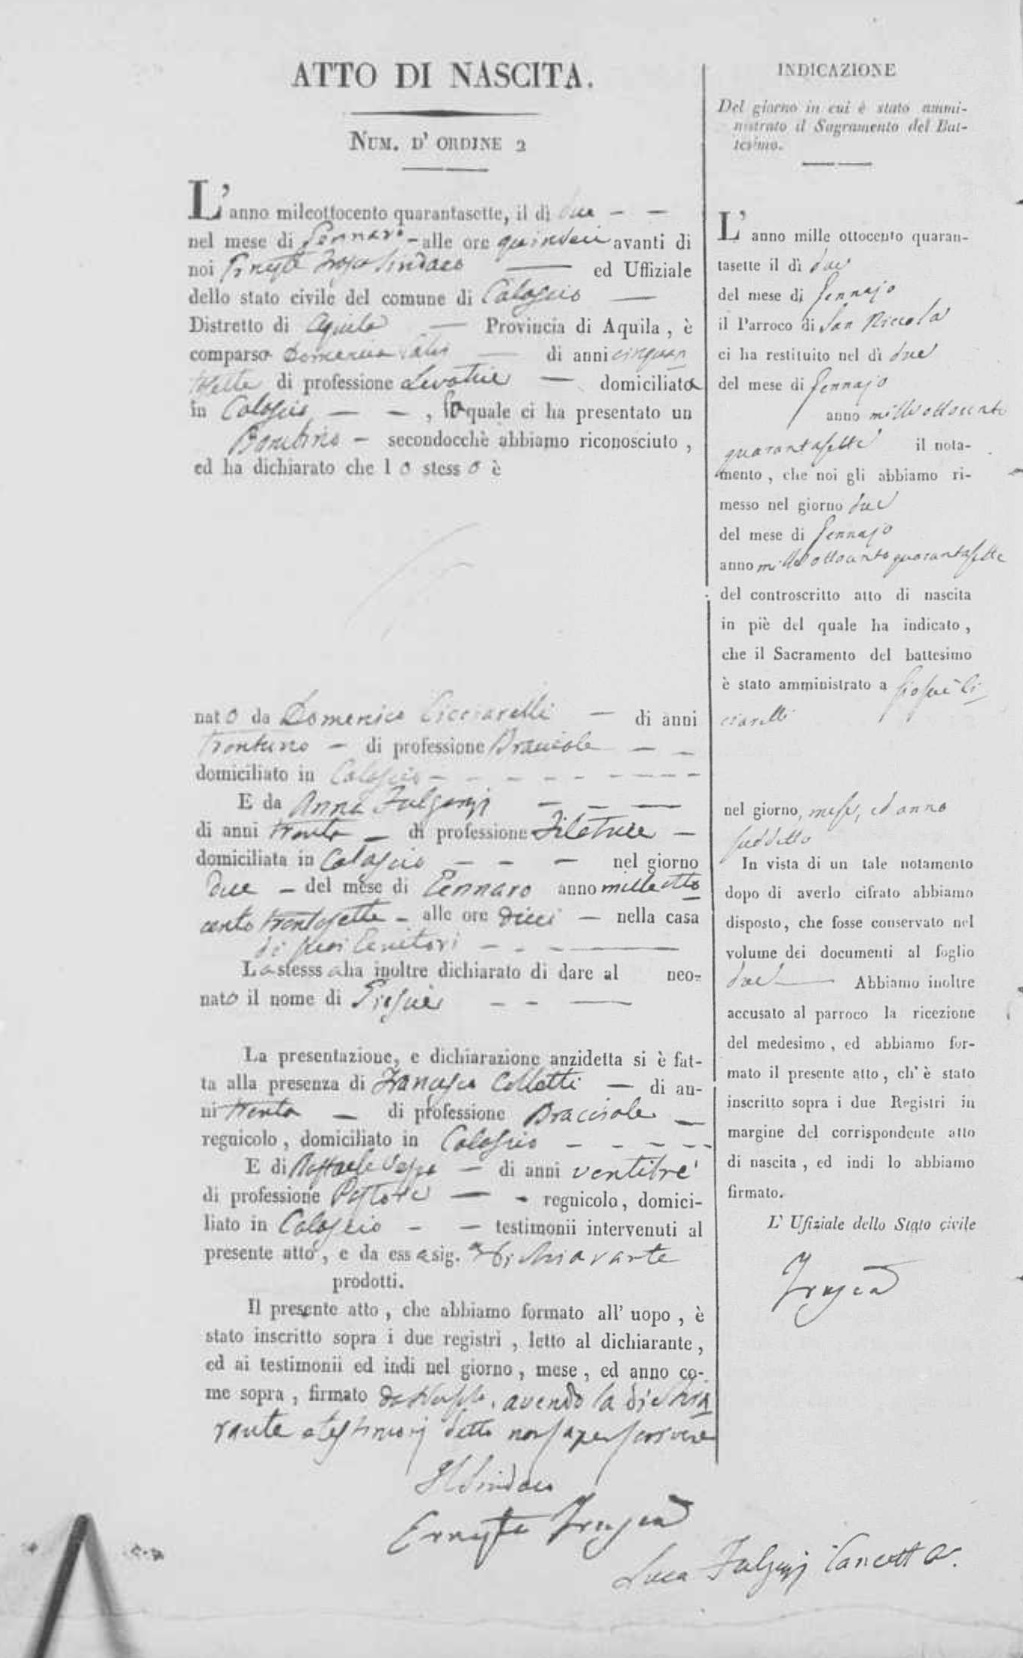 ATTO DI NASCITA.
NUM. D' ORDINE 2
L' anno mileottocento quarantasette, il dì due
nel mese di Gennaro alle ore quindeci avanti di
noi Ernesto Sindaco ed Uffiziale
dello stato civile del comune di Calascio
Distretto di Aquila Provincia di Aquila, è
comparsa Domenica di anni cinquan
tasette di professione Levatrice domiciliata
in Calascio, la quale ci ha presentato un
Bambino secondocchè abbiamo riconosciuto,
ed ha dichiarato che lo stesso è
nato da Domenico Cicciarelli di anni
trentuno di professione Bracciale
domiciliato in Calascio
E da Anna Fulgenzj
di anni trenta di professione Filatrice
domiciliata in Calascio nel giorno
due del mese di Gennaro anno milleotto
cento alle ore dieci nella casa
di suoi Genitori
La stesss a ha inoltre dichiarato di dare al neo-
nato il nome di Giosuè
La presentazione, e dichiarazione anzidetta si è fat-
ta alla presenza di Francesco Colletti di an-
ni trenta di professione Bracciale
regnicolo, domiciliato in Calascio
E di Raffaele di anni ventitrè
di professione Pastore regnicolo, domici-
liato in Calascio testimonii intervenuti al
presente atto, e da essa sig.a dichiarante
prodotti.
Il presente atto, che abbiamo formato all' uopo, è
stato inscritto sopra i due registri, letto al dichiarante,
ed ai testimonii ed indi nel giorno, mese, ed anno co-
me sopra, firmato da avendo la dichia
rante e testimonj detto non saper scrivere
Il Sindaco
Ernesto
Luca Fulgenzj Cancell.
INDICAZIONE
Del giorno in cui è stato ammi-
nistrato il Sagramento del Bat-
tesimo.
L' anno mille ottocento quaran-
tasette il dì due
del mese di Gennajo
il Parroco di San Niccola
ci ha restituito nel dì due
del mese di Gennajo
anno milleottocento
quarantasette il nota-
mento, che noi gli abbiamo ri-
messo nel giorno due
del mese di Gennajo
anno milleottocento quarantasette
del controscritto atto di nascita
in piè del quale ha indicato,
che il Sacramento del battesimo
è stato amministrato a Giosuè Ci
ciarelli
nel giorno, mese, ed anno
suddetto
In vista di un tale notamento
dopo di averlo cifrato abbiamo
disposto, che fosse conservato nel
volume dei documenti al foglio
due Abbiamo inoltre
accusato al parroco la ricezione
del medesimo, ed abbiamo for-
mato il presente atto, ch' è stato
inscritto sopra i due Registri in
margine del corrispondente atto
di nascita, ed indi lo abbiamo
firmato.
L' Ufiziale dello Stato civile